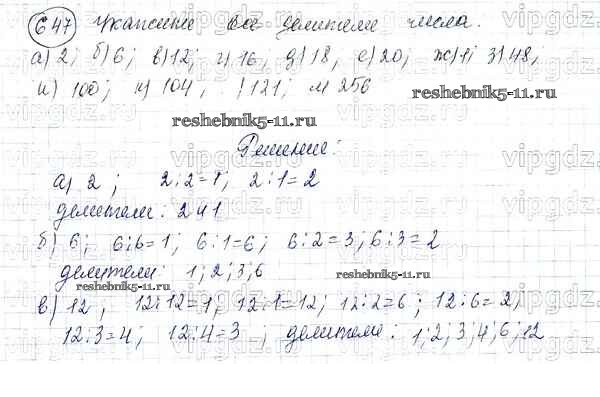 647 Укажите все делители числа.
а) 2; б) 6; в) 12; г) 16, д) 18, е) 20; ж) 1; з) 48,
и) 100; к) 104, л) 121; м 256
reshebnik5-11.ru
Решение:
а) 2 ; 2:2=1; 2:1=2
делители: 2 и 1
б) 6; 6:6=1; 6:1=6; 6:2=3; 6:3=2
делители: 1; 2; 3; 6
reshebnik5-11.ru
в) 12, 12:12=1, 12:1=12; 12:2=6; 12:6=2;
12:3=4; 12:4=3 ; делители: 1; 2; 3; 4; 6; 12